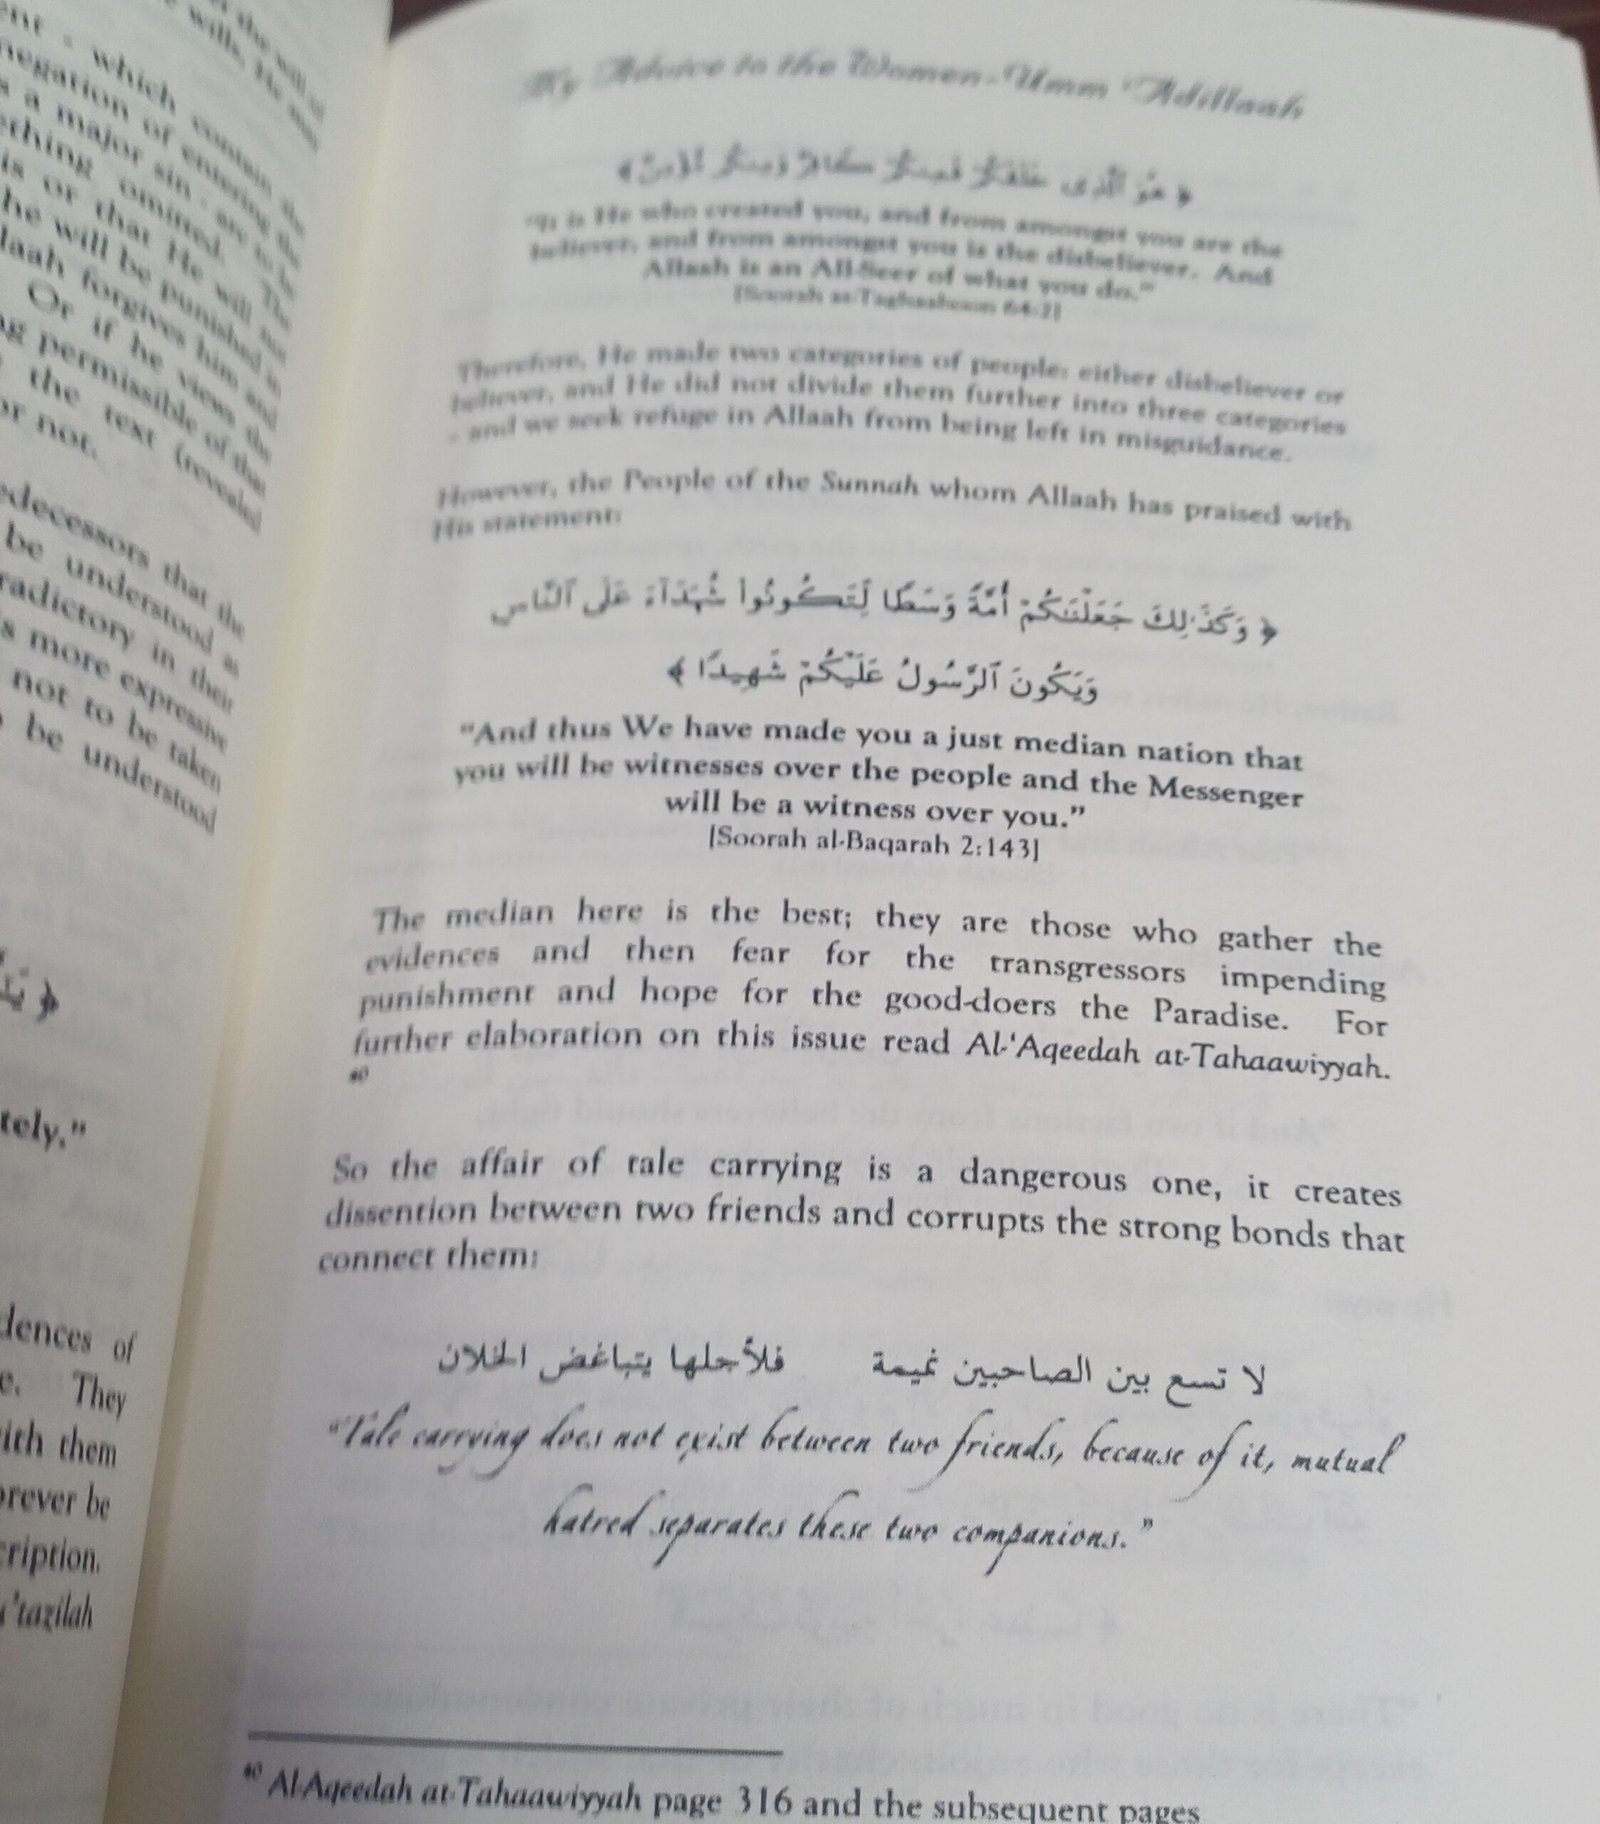 ent - which contain the
negation of entering the
s a major sin - are to be
ething omitted. The
is or that He will not
he will be punished in
llaah forgives him and
Or if he views the
ng permissible of that
the text (revealed
or not.
edecessors that the
be understood as
radictory in their
s more expressive
not to be taken
be understood
tely."
dences of
e. They
ith them
orever be
cription.
u'tazilah
My Advice to the Women-Umm 'Adillaah
﴿ هُوَ ٱلَّذِى خَلَقَكُمْ فَمِنكُمْ كَافِرٌ وَمِنكُم مُّؤْمِنٌ ﴾
"It is He who created you, and from amongst you are the
believer, and from amongst you is the disbeliever. And
Allaah is an All-Seer of what you do."
[Soorah at-Taghaaboon 64:2]
Therefore, He made two categories of people: either disbeliever or
believer, and He did not divide them further into three categories
- and we seek refuge in Allaah from being left in misguidance.
However, the People of the Sunnah whom Allaah has praised with
His statement:
﴿ وَكَذَٰلِكَ جَعَلْنَٰكُمْ أُمَّةً وَسَطًا لِّتَكُونُوا۟ شُهَدَآءَ عَلَى ٱلنَّاسِ
وَيَكُونَ ٱلرَّسُولُ عَلَيْكُمْ شَهِيدًا ﴾
"And thus We have made you a just median nation that
you will be witnesses over the people and the Messenger
will be a witness over you."
[Soorah al-Baqarah 2:143]
The median here is the best; they are those who gather the
evidences and then fear for the transgressors impending
punishment and hope for the good-doers the Paradise. For
further elaboration on this issue read Al-'Aqeedah at-Tahaawiyyah.
40
So the affair of tale carrying is a dangerous one, it creates
dissention between two friends and corrupts the strong bonds that
connect them:
لا تسع بين الصاحبين نميمة فلأجلها يتباغض الخلان
"Tale carrying does not exist between two friends, because of it, mutual
hatred separates these two companions."
40 Al-Aqeedah at-Tahaawiyyah page 316 and the subsequent pages